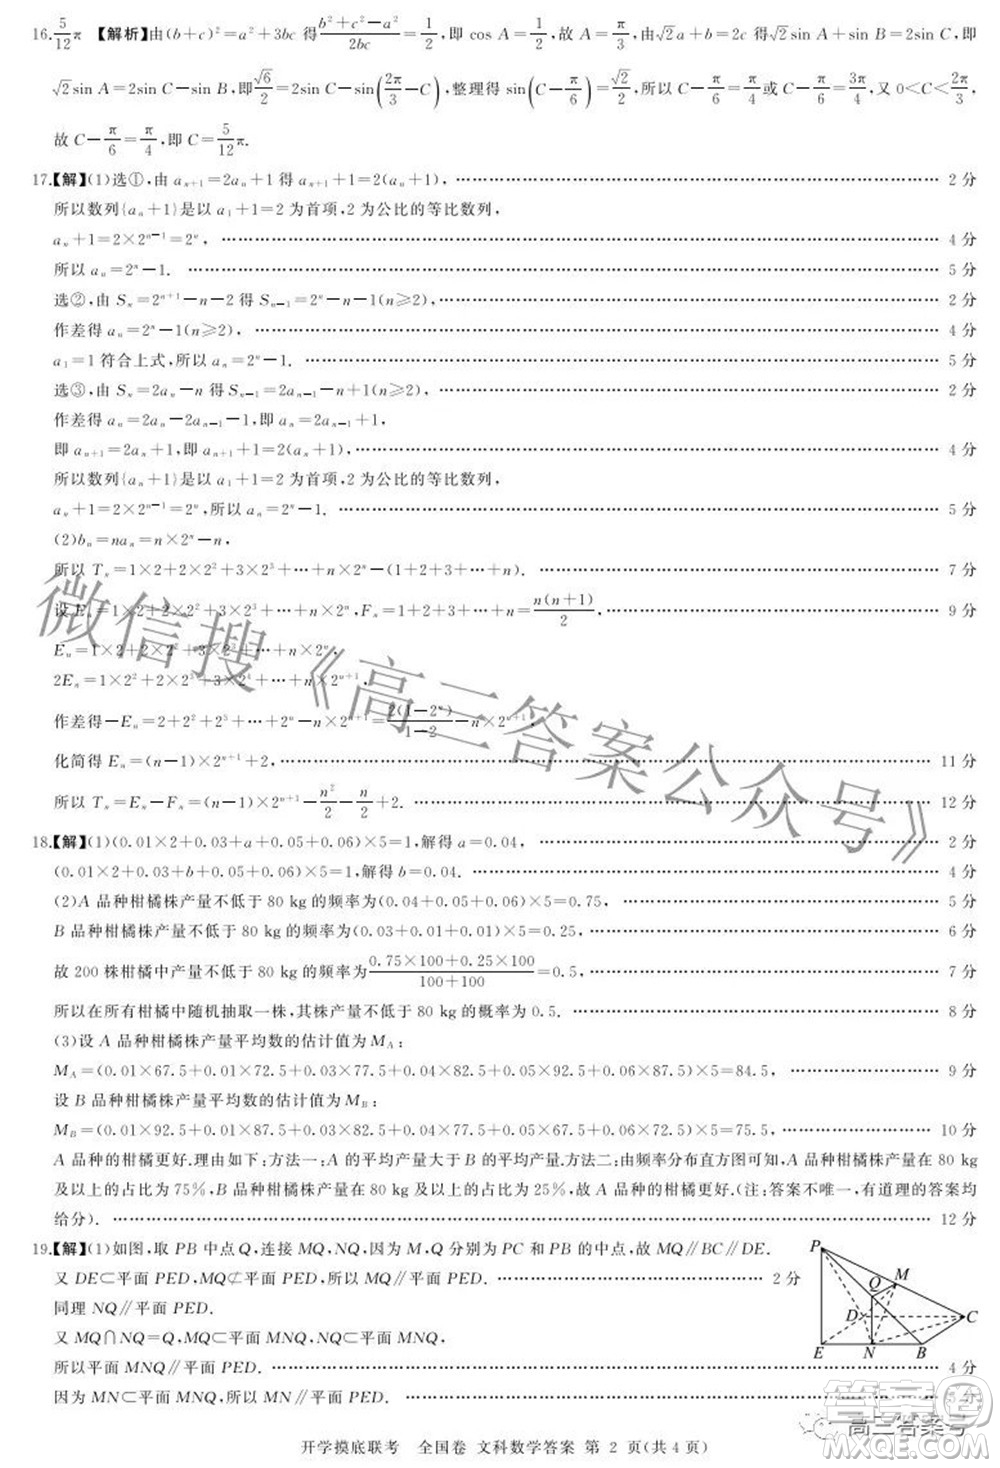 16.5/12π 【解析】由(b+c)²=a²+3bc 得(b²+c²-a²)/2bc=1/2,即 cos A=1/2,故 A=π/3,由√2a+b=2c 得√2sin A+sin B=2sin C,即
√2sin A=2sin C-sin B,即√6/2=2sin C-sin(2π/3-C),整理得 sin(C-π/6)=√2/2,所以 C-π/6=π/4或 C-π/6=3π/4,又 0<C<2π/3,
故 C-π/6=π/4,即 C=5/12π.
17.【解】(1)选①,由 aₙ₊₁=2aₙ+1 得 aₙ₊₁+1=2(aₙ+1), …… 2 分
所以数列{aₙ+1}是以 a₁+1=2 为首项,2 为公比的等比数列,
aₙ+1=2×2ⁿ⁻¹=2ⁿ, …… 4 分
所以 aₙ=2ⁿ-1. …… 5 分
选②,由 Sₙ=2ⁿ⁺¹-n-2 得 Sₙ₋₁=2ⁿ-n-1(n≥2), …… 2 分
作差得 aₙ=2ⁿ-1(n≥2), …… 4 分
a₁=1 符合上式,所以 aₙ=2ⁿ-1. …… 5 分
选③,由 Sₙ=2aₙ-n 得 Sₙ₋₁=2aₙ₋₁-n+1, …… 2 分
作差得 aₙ=2aₙ-2aₙ₋₁-1,即 aₙ=2aₙ₋₁+1,
即 aₙ₊₁=2aₙ+1,即 aₙ₊₁+1=2(aₙ+1), …… 4 分
所以数列{aₙ+1}是以 a₁+1=2 为首项,2 为公比的等比数列,
aₙ+1=2×2ⁿ⁻¹=2ⁿ,所以 aₙ=2ⁿ-1. …… 5 分
(2)bₙ=naₙ=n×2ⁿ-n,
所以 Tₙ=1×2+2×2²+3×2³+…+n×2ⁿ-(1+2+…+n). …… 7 分
设 Eₙ=1×2+2×2²+3×2³+…+n×2ⁿ,Fₙ=1+2+…+n=n(n+1)/2, …… 9 分
Eₙ=1×2+2×2²+3×2³+…+n×2ⁿ,
2Eₙ=1×2²+2×2³+3×2⁴+…+n×2ⁿ⁺¹,
作差得-Eₙ=2+2²+2³+…+2ⁿ-n×2ⁿ⁺¹=2(1-2ⁿ)/(1-2)-n×2ⁿ⁺¹,
化简得 Eₙ=(n-1)×2ⁿ⁺¹+2, …… 11 分
所以 Tₙ=Eₙ-Fₙ=(n-1)×2ⁿ⁺¹-n²/2-n/2+2. …… 12 分
18.【解】(1)(0.01×2+0.03+a+0.05+0.06)×5=1,解得 a=0.04, …… 2 分
(0.01×2+0.03+b+0.05+0.06)×5=1,解得 b=0.04. …… 4 分
(2)A 品种柑橘株产量不低于 80 kg 的频率为(0.04+0.05+0.06)×5=0.75, …… 5 分
B 品种柑橘株产量不低于 80 kg 的频率为(0.03+0.01+0.01)×5=0.25, …… 6 分
故 200 株柑橘中产量不低于 80 kg 的频率为(0.75×100+0.25×100)/(100+100)=0.5, …… 7 分
所以在所有柑橘中随机抽取一株,其株产量不低于 80 kg 的概率为 0.5. …… 8 分
(3)设 A 品种柑橘株产量平均数的估计值为 M_A:
M_A=(0.01×67.5+0.01×72.5+0.03×77.5+0.04×82.5+0.05×92.5+0.06×87.5)×5=84.5, …… 9 分
设 B 品种柑橘株产量平均数的估计值为 M_B:
M_B=(0.01×92.5+0.01×87.5+0.03×82.5+0.04×77.5+0.05×67.5+0.06×72.5)×5=75.5, …… 10 分
A 品种的柑橘更好.理由如下:方法一:A 的平均产量大于 B 的平均产量.方法二:由频率分布直方图可知,A 品种柑橘株产量在 80 kg
及以上的占比为 75%,B 品种柑橘株产量在 80 kg 及以上的占比为 25%,故 A 品种的柑橘更好.(注:答案不唯一,有道理的答案均
给分). …… 12 分
19.【解】(1)如图,取 PB 中点 Q,连接 MQ,NQ,因为 M,Q 分别为 PC 和 PB 的中点,故 MQ∥BC∥DE.
又 DE⊂平面 PED,MQ⊄平面 PED,所以 MQ∥平面 PED. …… 2 分
同理 NQ∥平面 PED.
又 MQ∩NQ=Q,MQ⊂平面 MNQ,NQ⊂平面 MNQ,
所以平面 MNQ∥平面 PED. …… 4 分
因为 MN⊂平面 MNQ,所以 MN∥平面 PED. …… 5 分
P
M
Q
D
C
E
N
B
微信搜《高三答案公众号》
高三答案号
答案圈
MXQE.COM
开学摸底联考 全国卷 文科数学答案 第 2 页(共 4 页)